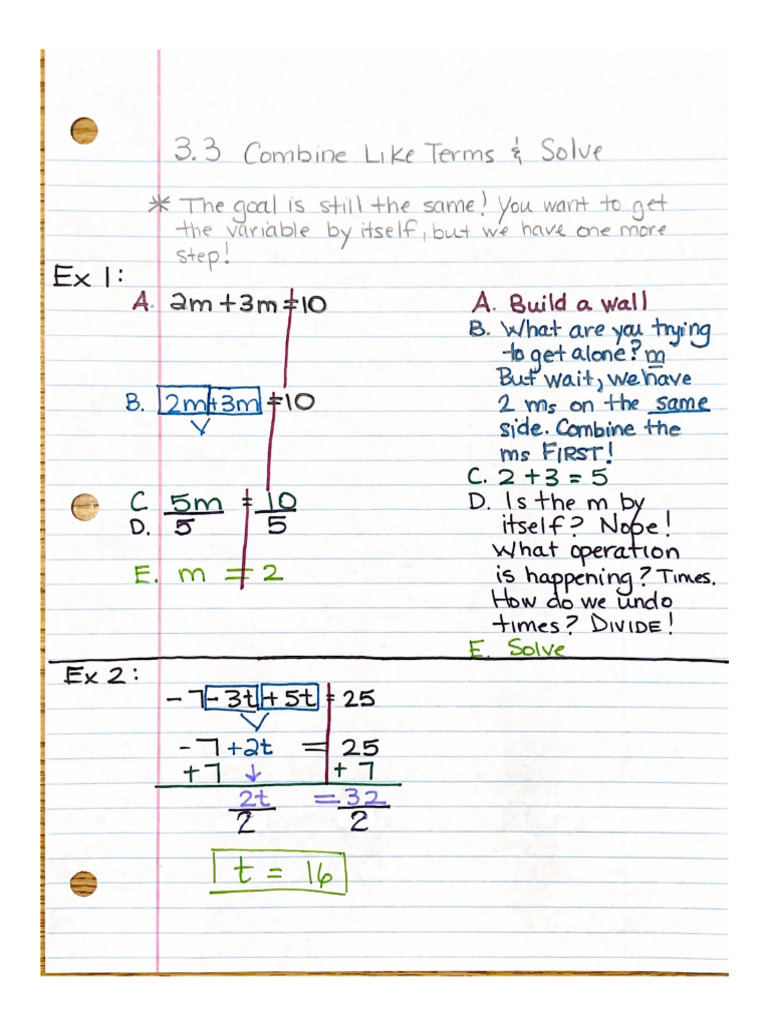 3.3 Combine Like Terms & Solve
* The goal is still the same! You want to get
the variable by itself, but we have one more
step!
Ex 1:
A. 2m + 3m = 10
B. 2m + 3m = 10
C 5m = 10
D. 5 5
E. m = 2
A. Build a wall
B. What are you trying
to get alone? m
But wait, we have
2 ms on the same
side. Combine the
ms FIRST!
C. 2 + 3 = 5
D. Is the m by
itself? Nope!
What operation
is happening? Times.
How do we undo
times? DIVIDE!
E. Solve
Ex 2:
-7 - 3t + 5t = 25
-7 + 2t = 25
+7 ↓ + 7
2t = 32
2 2
t = 16